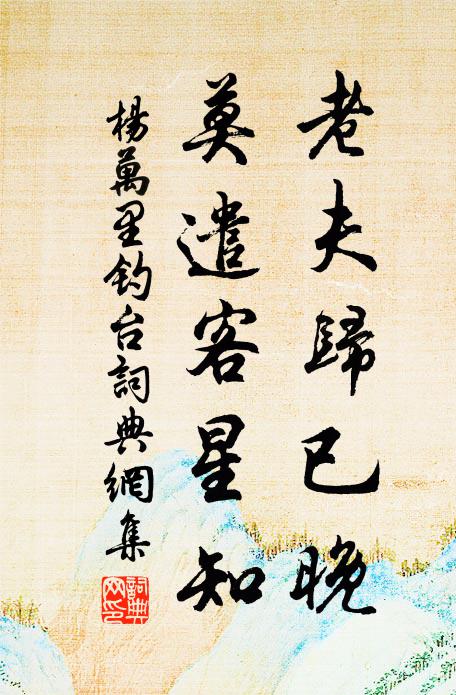 老夫歸已晚
莫遣客星知
楊萬里釣台詞典網集
詞典網印